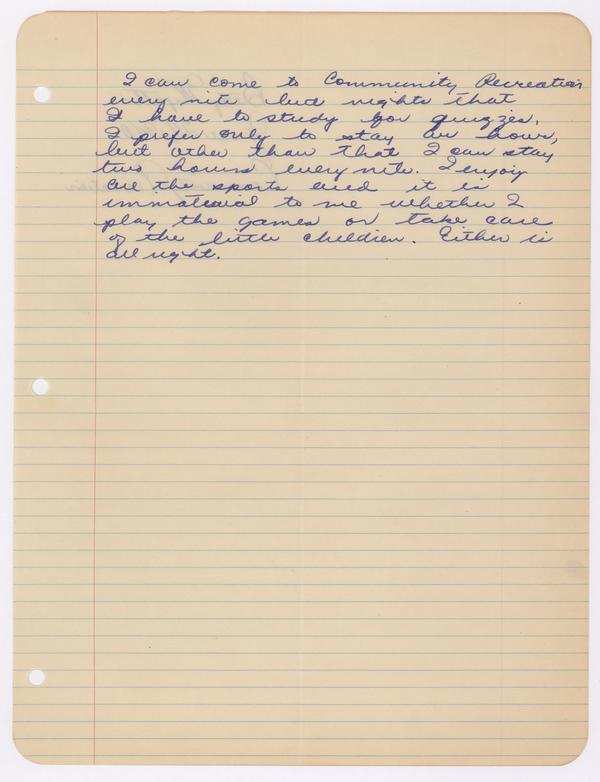 I can come to Community Recreation
every nite but nights that
I have to study for quizzes.
I prefer only to stay an hour,
but other than that I can stay
two hours every nite. I enjoy
all the sports and it is
immaterial to me whether I
play the games or take care
of the little children. Either is
all right.